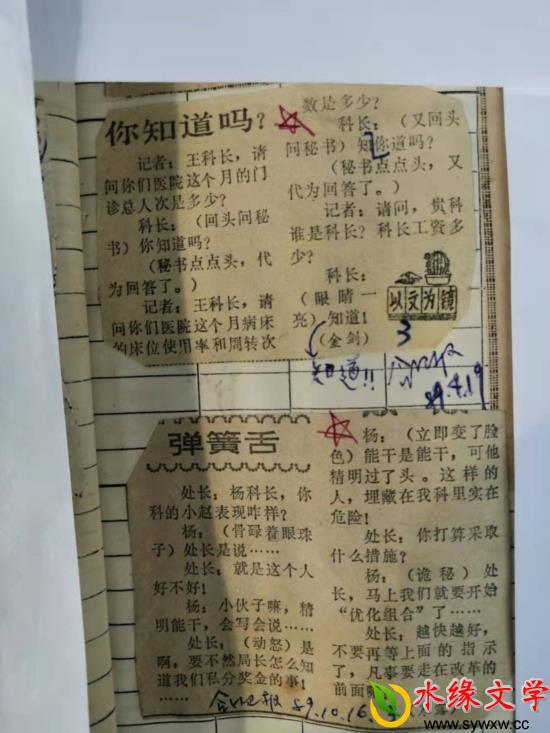 你知道吗？
记者：王科长，请
问你们医院这个月的门
诊总人次是多少？
科长：（回头问秘
书）你知道吗？
（秘书点点头，代
为回答了。）
记者：王科长，请
问你们医院这个月病床
的床位使用率和周转次
数是多少？
科长：（又回头
问秘书）知你道吗？
（秘书点点头，又
代为回答了。）
记者：请问，贵科
谁是科长？科长工资多
少？
科长：
（眼睛一
亮）知道！
（金剑）
以文为镜
3
知道!!
89.4.19
弹簧舌
处长：杨科长，你
科的小赵表现咋样？
杨：（骨碌着眼珠
子）处长是说……
处长：就是这个人
好不好！
杨：小伙子嘛，精
明能干，会写会说……
处长：（动怒）是
啊，要不然局长怎么知
道我们私分奖金的事！
……
杨：（立即变了脸
色）能干是能干，可他
精明过了头。这样的
人，埋藏在我科里实在
危险！
处长：你打算采取
什么措施？
杨：（诡秘）处
长，马上我们就要开始
“优化组合”了……
处长：越快越好，
不要再等上面的指示
了，凡事要走在改革的
前面嘛
89.10.16
水缘文学
www.sywxw.cc